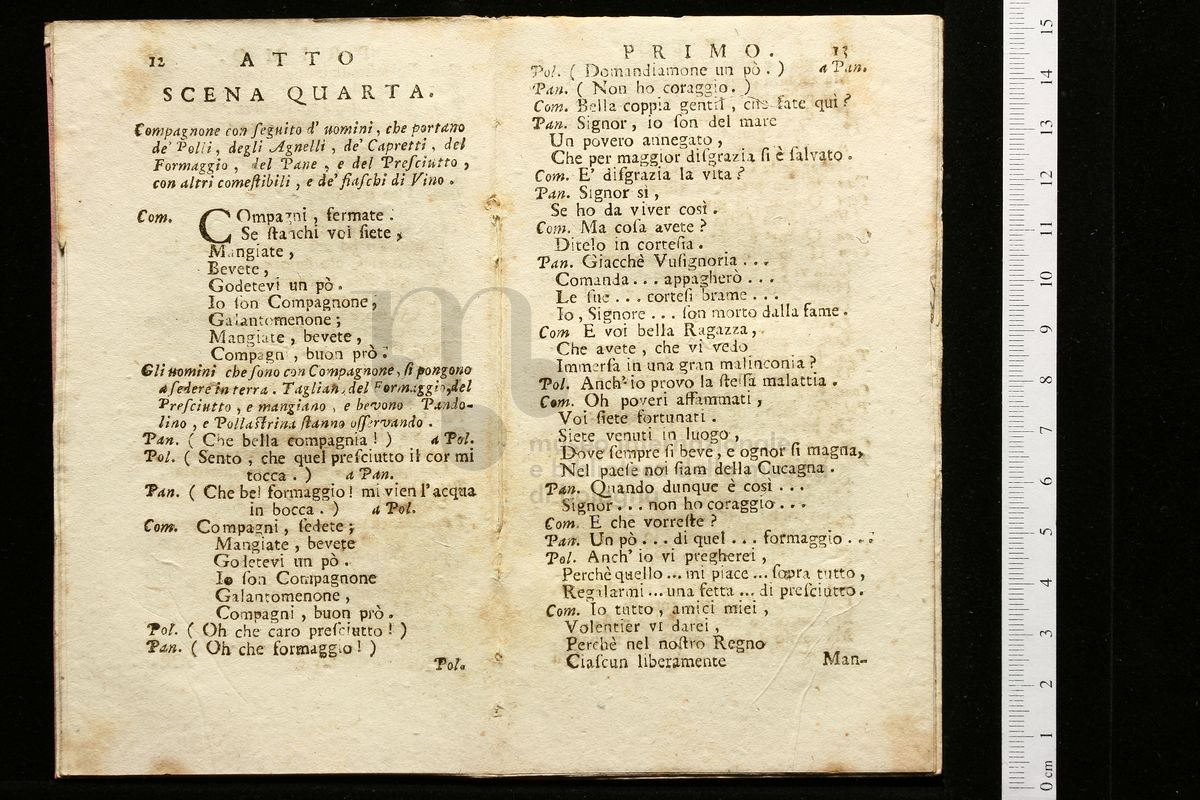 12 ATTO
SCENA QUARTA.
Compagnone con ſeguito d' uomini, che portano
de' Polli, degli Agnelli, de' Capretti, del
Formaggio, del Pane, e del Preſciutto,
con altri comeſtibili, e de' fiaſchi di Vino.
Com. COmpagni, fermate:
Se ſtanchi voi ſiete,
Mangiate,
Bevete,
Godetevi un pò.
Io ſon Compagnone,
Galantomenone;
Mangiate, bevete,
Compagni, buon prò.
Gli uomini che ſono con Compagnone, ſi pongono
a ſedere in terra. Taglian, del Formaggio, del
Preſciutto, e mangiano, e bevono Pando-
lino, e Pollaſtrina ſtanno oſſervando.
Pan. (Che bella compagnia!) a Pol.
Pol. (Sento, che quel preſciutto il cor mi
tocca.) a Pan.
Pan. (Che bel formaggio! mi vien l'acqua
in bocca.) a Pol.
Com. Compagni, ſedete;
Mangiate, bevete
Godetevi un pò.
Io ſon Compagnone
Galantomenone,
Compagni, buon prò.
Pol. (Oh che caro preſciutto!)
Pan. (Oh che formaggio!)
Pol.
PRIMO. 13
Pol. (Domandiamone un pò.) a Pan.
Pan. (Non ho coraggio.)
Com. Bella coppia gentil, che fate quì?
Pan. Signor, io ſon del mare
Un povero annegato,
Che per maggior diſgrazia ſi è ſalvato.
Com. E' diſgrazia la vita?
Pan. Signor sì,
Se ho da viver così.
Com. Ma coſa avete?
Ditelo in corteſia.
Pan. Giacchè Vuſignoria...
Comanda... appagherò...
Le ſue... corteſi brame...
Io, Signore... ſon morto dalla fame.
Com E voi bella Ragazza,
Che avete, che vi vedo
Immerſa in una gran malinconia?
Pol. Anch' io provo la ſteſſa malattia.
Com. Oh poveri affammati,
Voi ſiete fortunati.
Siete venuti in luogo,
Dove ſempre ſi beve, e ognor ſi magna,
Nel paeſe noi ſiam della Cucagna.
Pan. Quando dunque è così...
Signor... non ho coraggio...
Com. E che vorreſte?
Pan. Un pò... di quel... formaggio...
Pol. Anch' io vi pregherei,
Perchè quello... mi piace... ſopra tutto,
Regalarmi... una fetta... di preſciutto.
Com. Io tutto, amici miei,
Volentier vi darei,
Perchè nel noſtro Regno
Ciaſcun liberamente
Man-
0 cm 1 2 3 4 5 6 7 8 9 10 11 12 13 14 15